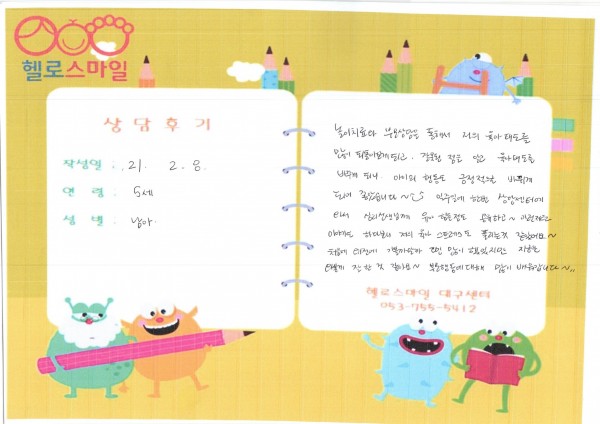 헬로스마일
상담후기
작성일 : 21. 2. 8.
연 령 : 5세
성 별 : 남아.
놀이치료와 부모상담을 통해서 저의 육아태도를
많이 되돌아보게 되고, 잘못된 점은 알고 육아태도를
바꾸게 되니 아이의 행동도 긍정적으로 바뀌게
되어 좋았습니다~
일주일에 한번 상담센터에
와서 심리선생님께 육아
공유하고~ 이런저런
이야기도 하다보니 저의 육아 스트레스도 풀리는것 같았어요~
처음에 이곳에 까지 많이 지금은
잘 한 것 같아요~ 부모행동에 대해 많이 배웁니다~
헬로스마일 대구센터
053-755-5412